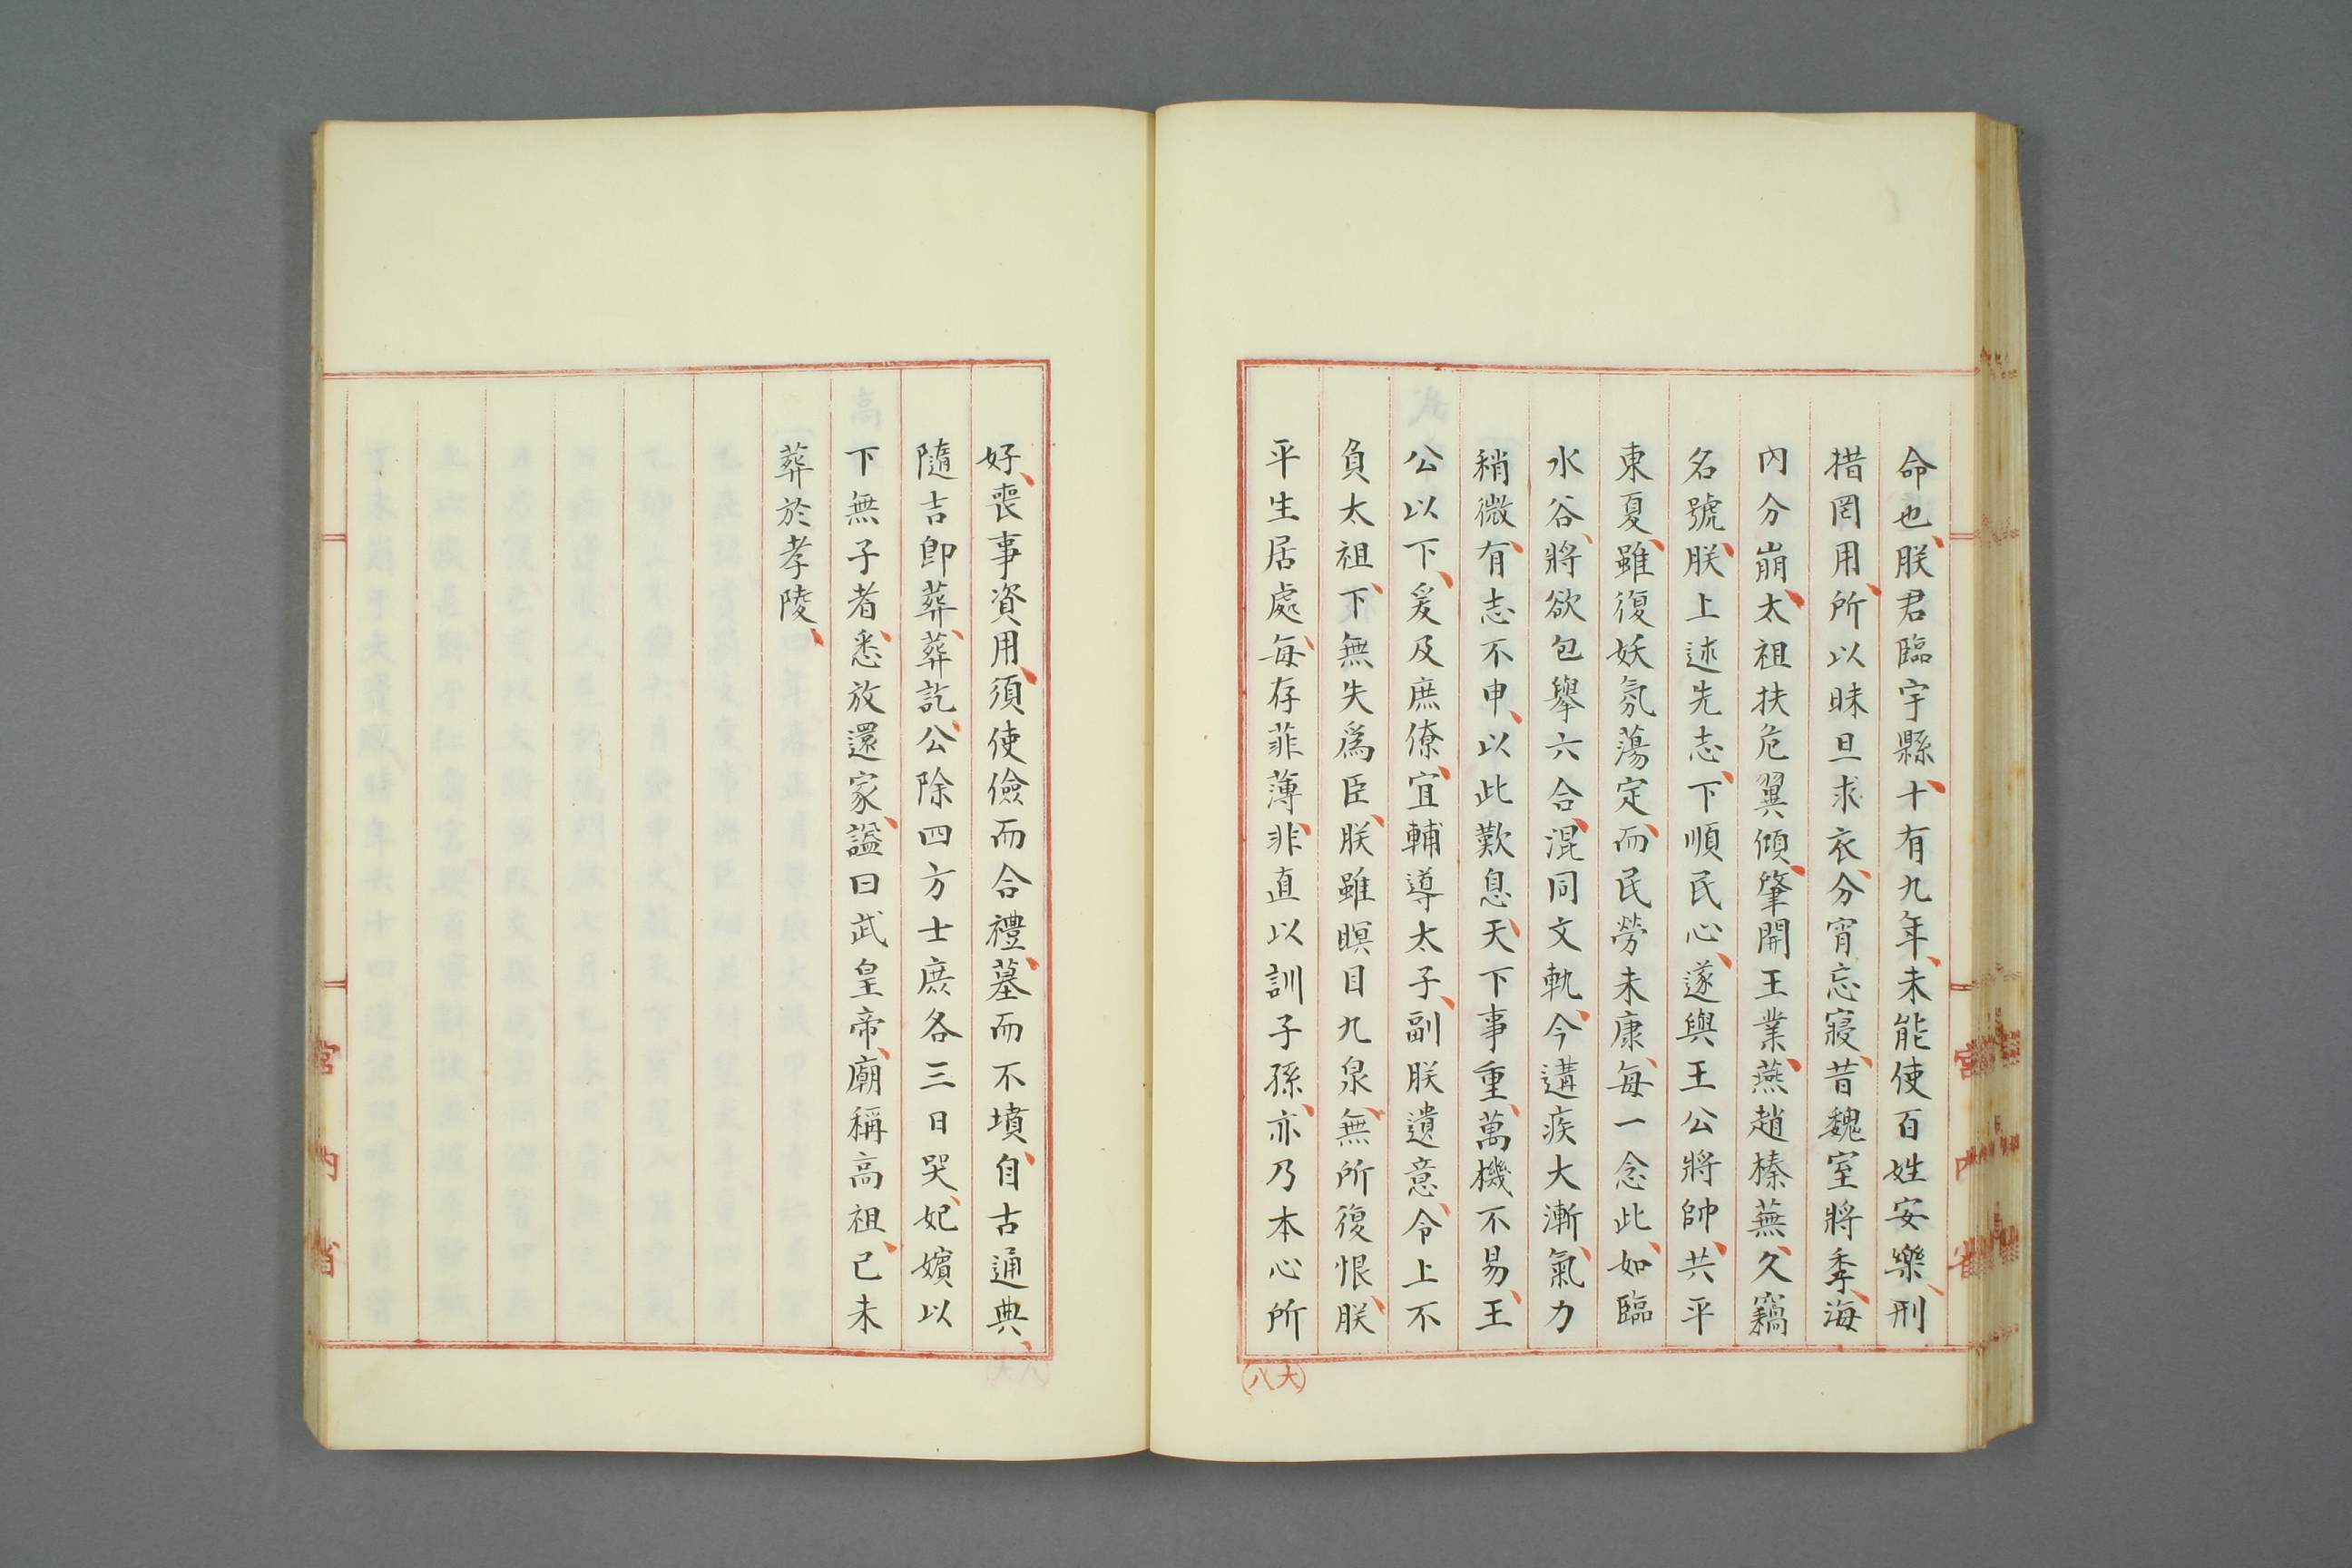 命也、朕君臨宇縣、十有九年、未能使百姓安樂、刑
措罔用、所以昧旦求衣、分宵忘寢、昔魏室將季、海
內分崩、太祖扶危翼傾、肇開王業、燕趙榛蕪、久竊
名號、朕上述先志、下順民心、遂與王公將帥、共平
東夏、雖復妖氛蕩定、而民勞未康、每一念此、如臨
水谷、將欲包舉六合、混同文軌、今遘疾大漸、氣力
稍微、有志不申、以此歎息、天下事重、萬機不易、王
公以下、爰及庶僚、宜輔導太子、副朕遺意、令上不
負太祖、下無失爲臣、朕雖瞑目九泉、無所復恨、朕
平生居處、每存菲薄、非直以訓子孫、亦乃本心所
(大八)
好、喪事資用、須使儉而合禮、墓而不墳、自古通典、
隨吉卽葬、葬訖、公除四方士庶各三日哭、妃嬪以
下無子者、悉放還家、謚曰武皇帝、廟稱高祖、己未
葬於孝陵、
宮內省